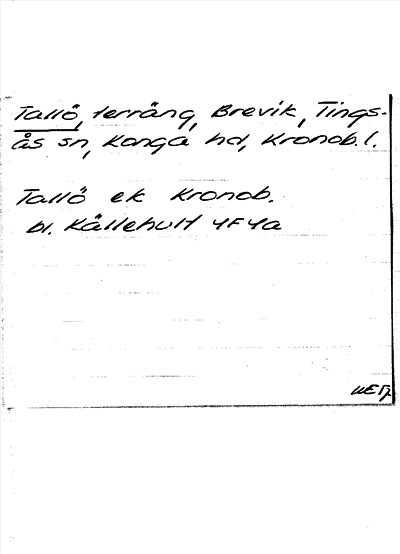 Tallö, terräng, Brevik, Tings-
ås sn, Konga hd, Kronob. l.
Tallö ek Kronob.
bl. Kållehult 4F4a